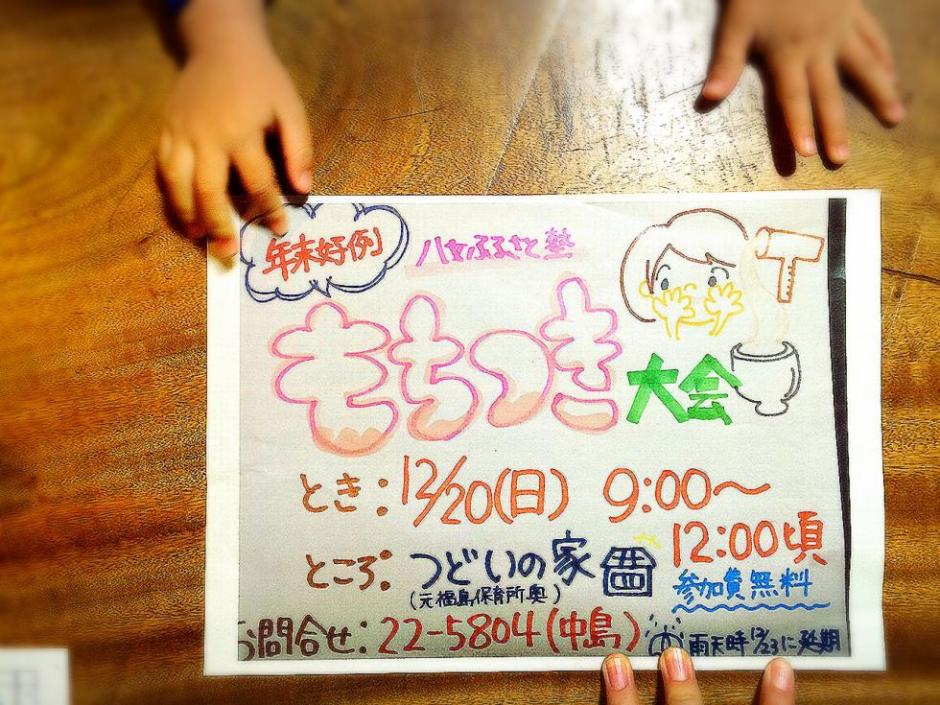 年末好例
八女ふるさと塾
もちつき大会
とき：12/20(日) 9:00〜
12:00頃
ところ：つどいの家
(元福島保育所奥)
参加費無料
お問合せ：22-5804(中島)
雨天時12/23に延期